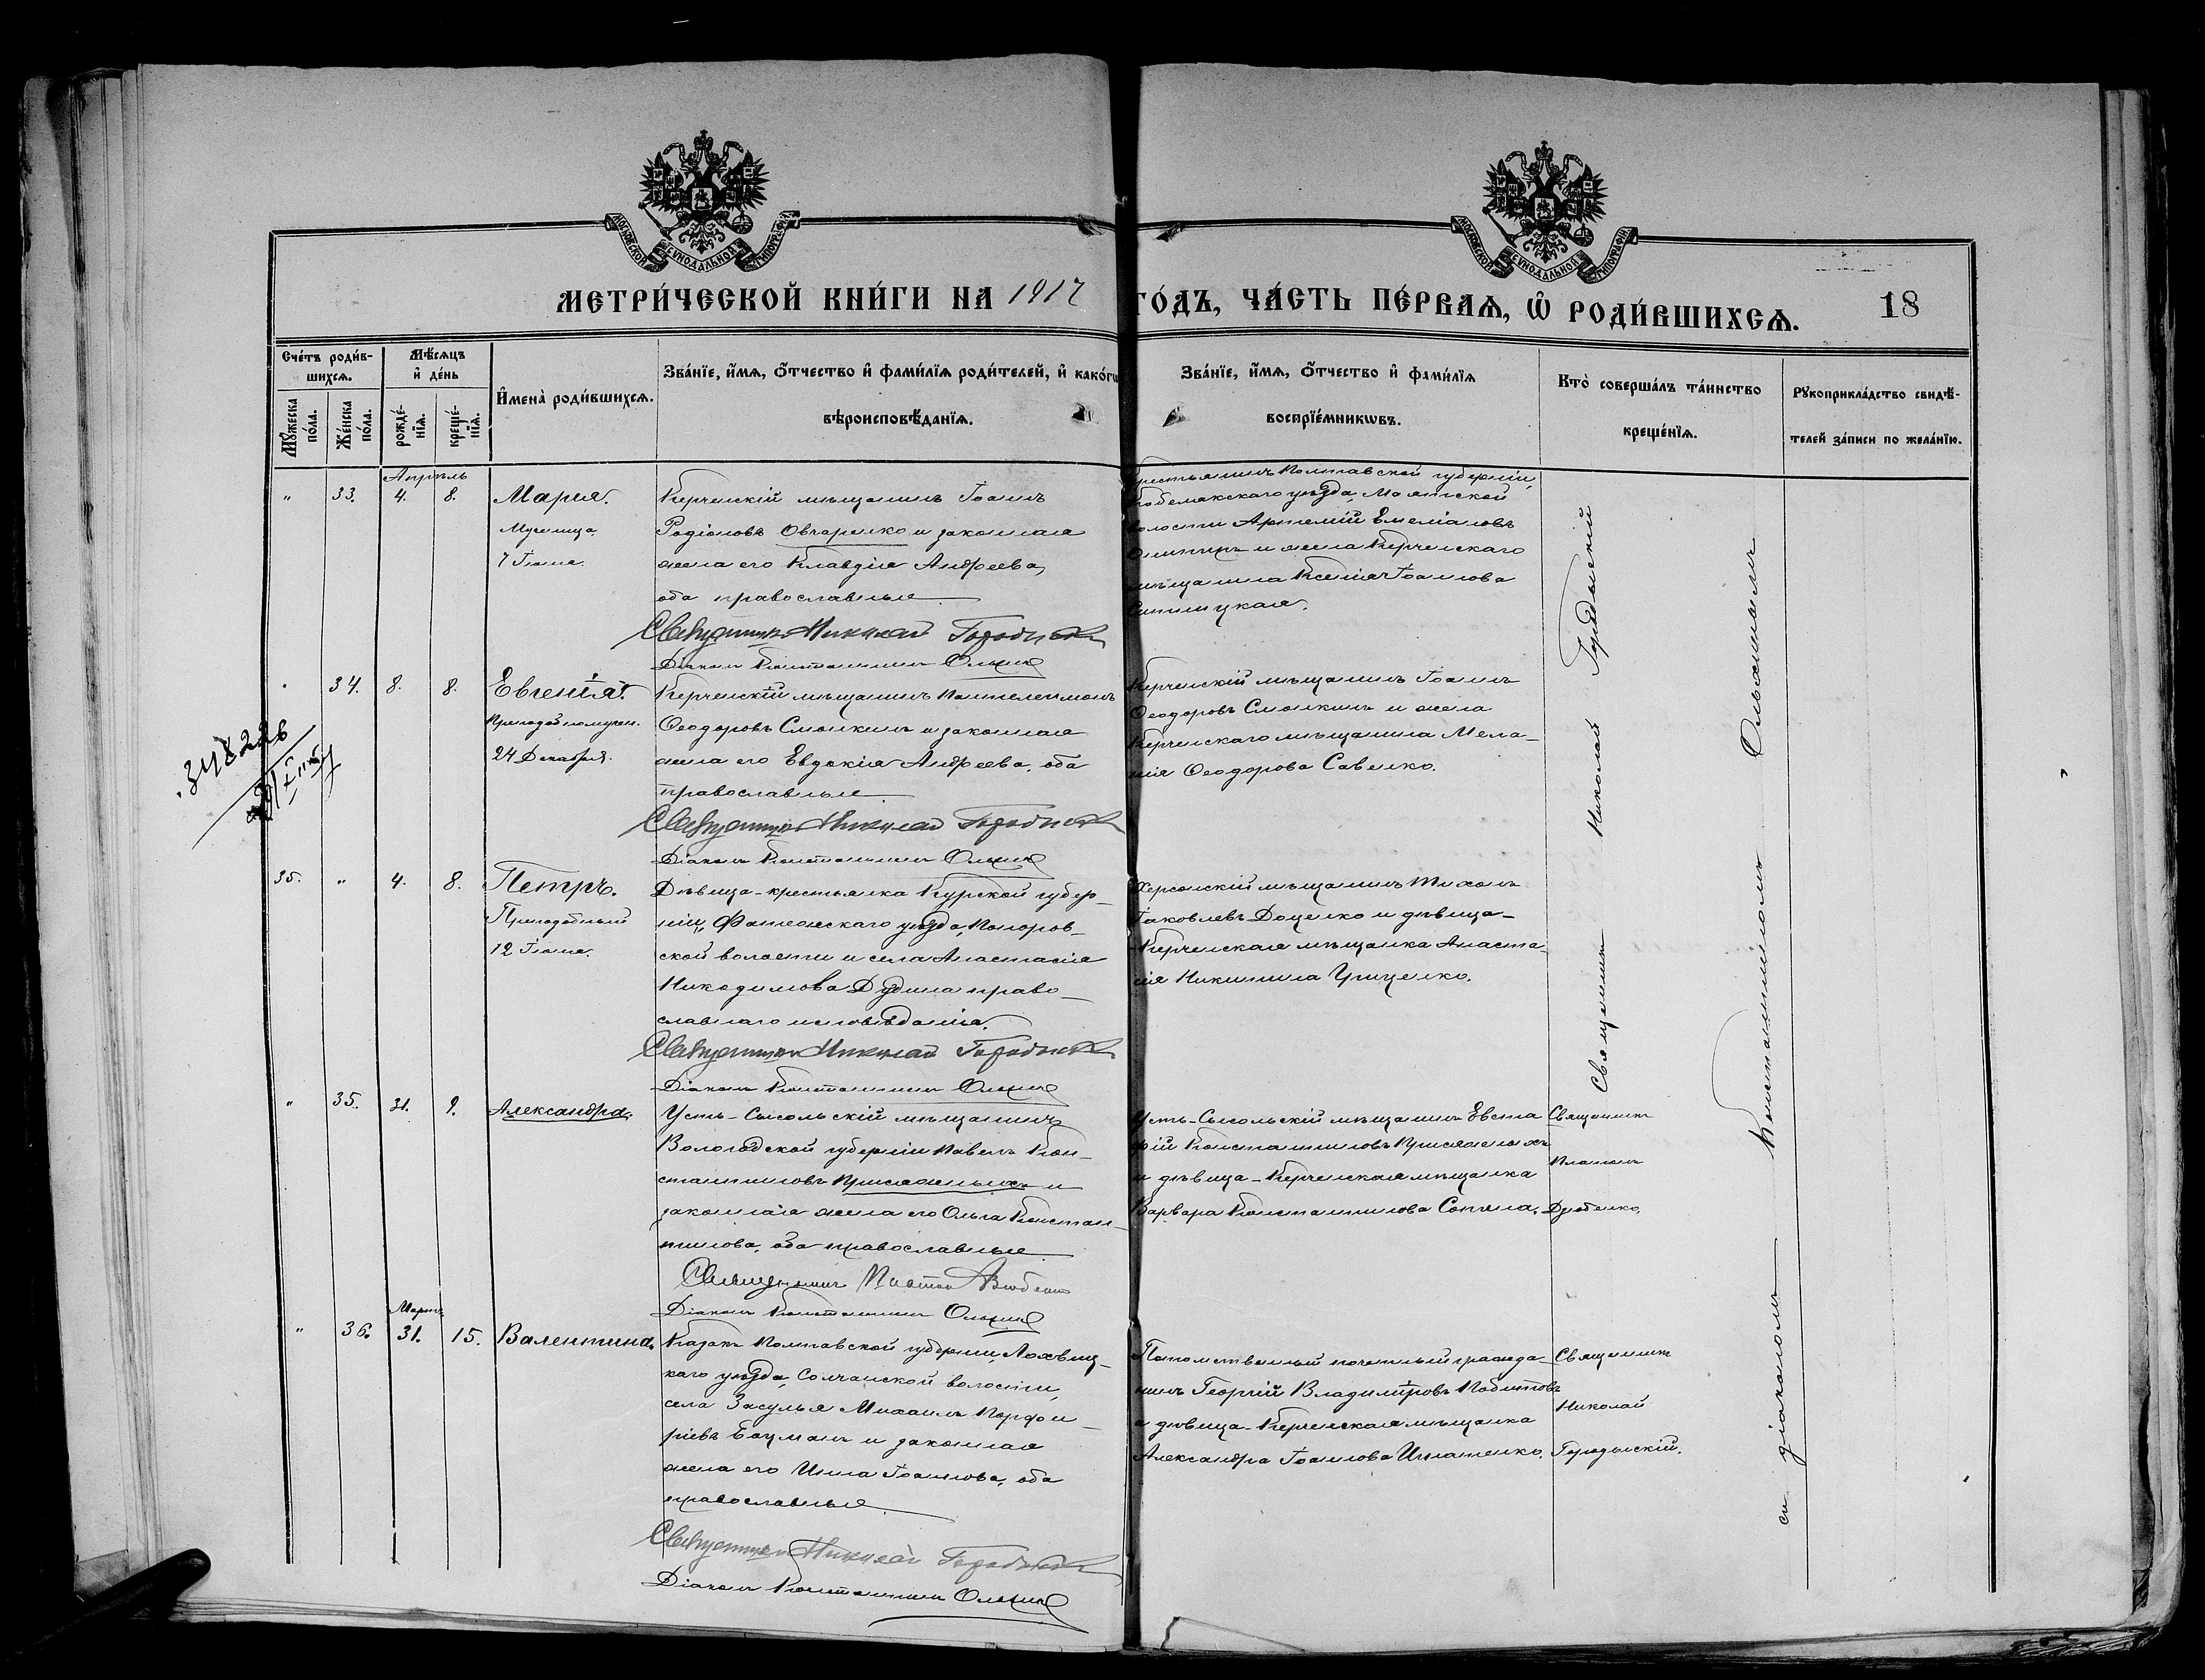 МОСКОВСКОЙ СѴНОДАЛЬНОЙ ТИПОГРАФІИ
МОСКОВСКОЙ СѴНОДАЛЬНОЙ ТИПОГРАФІИ
МЕТРИ́ЧЕСКОЙ КНИ́ГИ НА 1917 ГО́ДЪ, ЧА́СТЬ ПЕ́РВАѦ, Ѽ РОДИ́ВШИХСѦ. 18
Сче́тъ роди́в-
шихсѧ.
Мꙋ́жеска по́ла.
Же́нска по́ла.
Мѣ́сѧцъ и҆ де́нь
рожде́-нїѧ.
креще́-нїѧ.
И҆мена̀ роди́вшихсѧ.
Зва́нїе, и҆́мѧ, о҆́тчество и҆ фами́лїѧ роди́телей, и҆ како́гѡ
вѣроисповѣ́данїѧ.
Зва́нїе, и҆́мѧ, о҆́тчество и҆ фами́лїѧ
воспрїе́мникѡвъ.
Кто̀ соверша́лъ та́инство
креще́нїѧ.
Рꙋкоприкла́дство свидѣ́-
телей за́писи по жела́нїю.
Апрѣль
" 33. 4. 8. Марія.
Мученица
7 Іюня.
Керченскій мѣщанинъ Іоаннъ
Родіоновъ Овчаренко и законная
жена его Клавдія Андреева,
оба православные
Священникъ Николай Городыскій
Діаконъ Константинъ
крестьянинъ Полтавской губерніи,
Кобелякскаго уѣзда, Маячской
волости Артемій Емеліановъ
и жена Керченскаго
мѣщанина Ксенія Іоаннова
" 34. 8. 8. Евгенія.
Преподобномучен.
24 Декабря.
Керченскій мѣщанинъ Пантелеимонъ
Ѳеодоровъ Смолкинъ и законная
жена его Евдокія Андреева, оба
православные
Священникъ Николай Городыскій
Діаконъ Константинъ
Керченскій мѣщанинъ Іоаннъ
Ѳеодоровъ Смолкинъ и жена
Керченскаго мѣщанина Мела-
нія Ѳеодорова Савенко.
35. " 4. 8. Петръ.
Преподобный
12 Іюня.
Дѣвица-крестьянка Курской губер-
ніи, Фатежскаго уѣзда,
ской волости и села Анастасія
Никодимова Дудина право-
славнаго исповѣданія.
Священникъ Николай Городыскій
Діаконъ Константинъ
Херсонскій мѣщанинъ Тихонъ
Іаковлевъ Доценко и дѣвица-
Керченская мѣщанка Анаста-
сія Никитина Гриценко.
" 35. 31. 9. Александра.
Усть-Сысольскій мѣщанинъ
Вологодской губерніи Павелъ Кон-
стантиновъ Присяжныхъ и
законная жена его Ольга Констан-
тинова, оба православные
Священникъ Платонъ
Діаконъ Константинъ
Усть-Сысольскій мѣщанинъ Евста
фій Константиновъ Присяжныхъ
и дѣвица-Керченская мѣщанка
Варвара Константинова
Священникъ
Платонъ
Мартъ
" 36. 31. 15. Валентина.
Казакъ Полтавской губерніи, Лохвиц-
каго уѣзда, Солчанской волости,
села Засулья Михаилъ Порфи-
ріевъ Бацманъ и законная
жена его Нина Іоаннова, оба
православные
Священникъ Николай Городыскій
Діаконъ Константинъ
Потомственный почетный гражда-
нинъ Георгій Владиміровъ
и дѣвица-Керченская мѣщанка
Александра Іоаннова Игнатенко.
Священникъ
Николай
Городыскій.
Священникъ Николай Городыскій
съ діакономъ Константиномъ